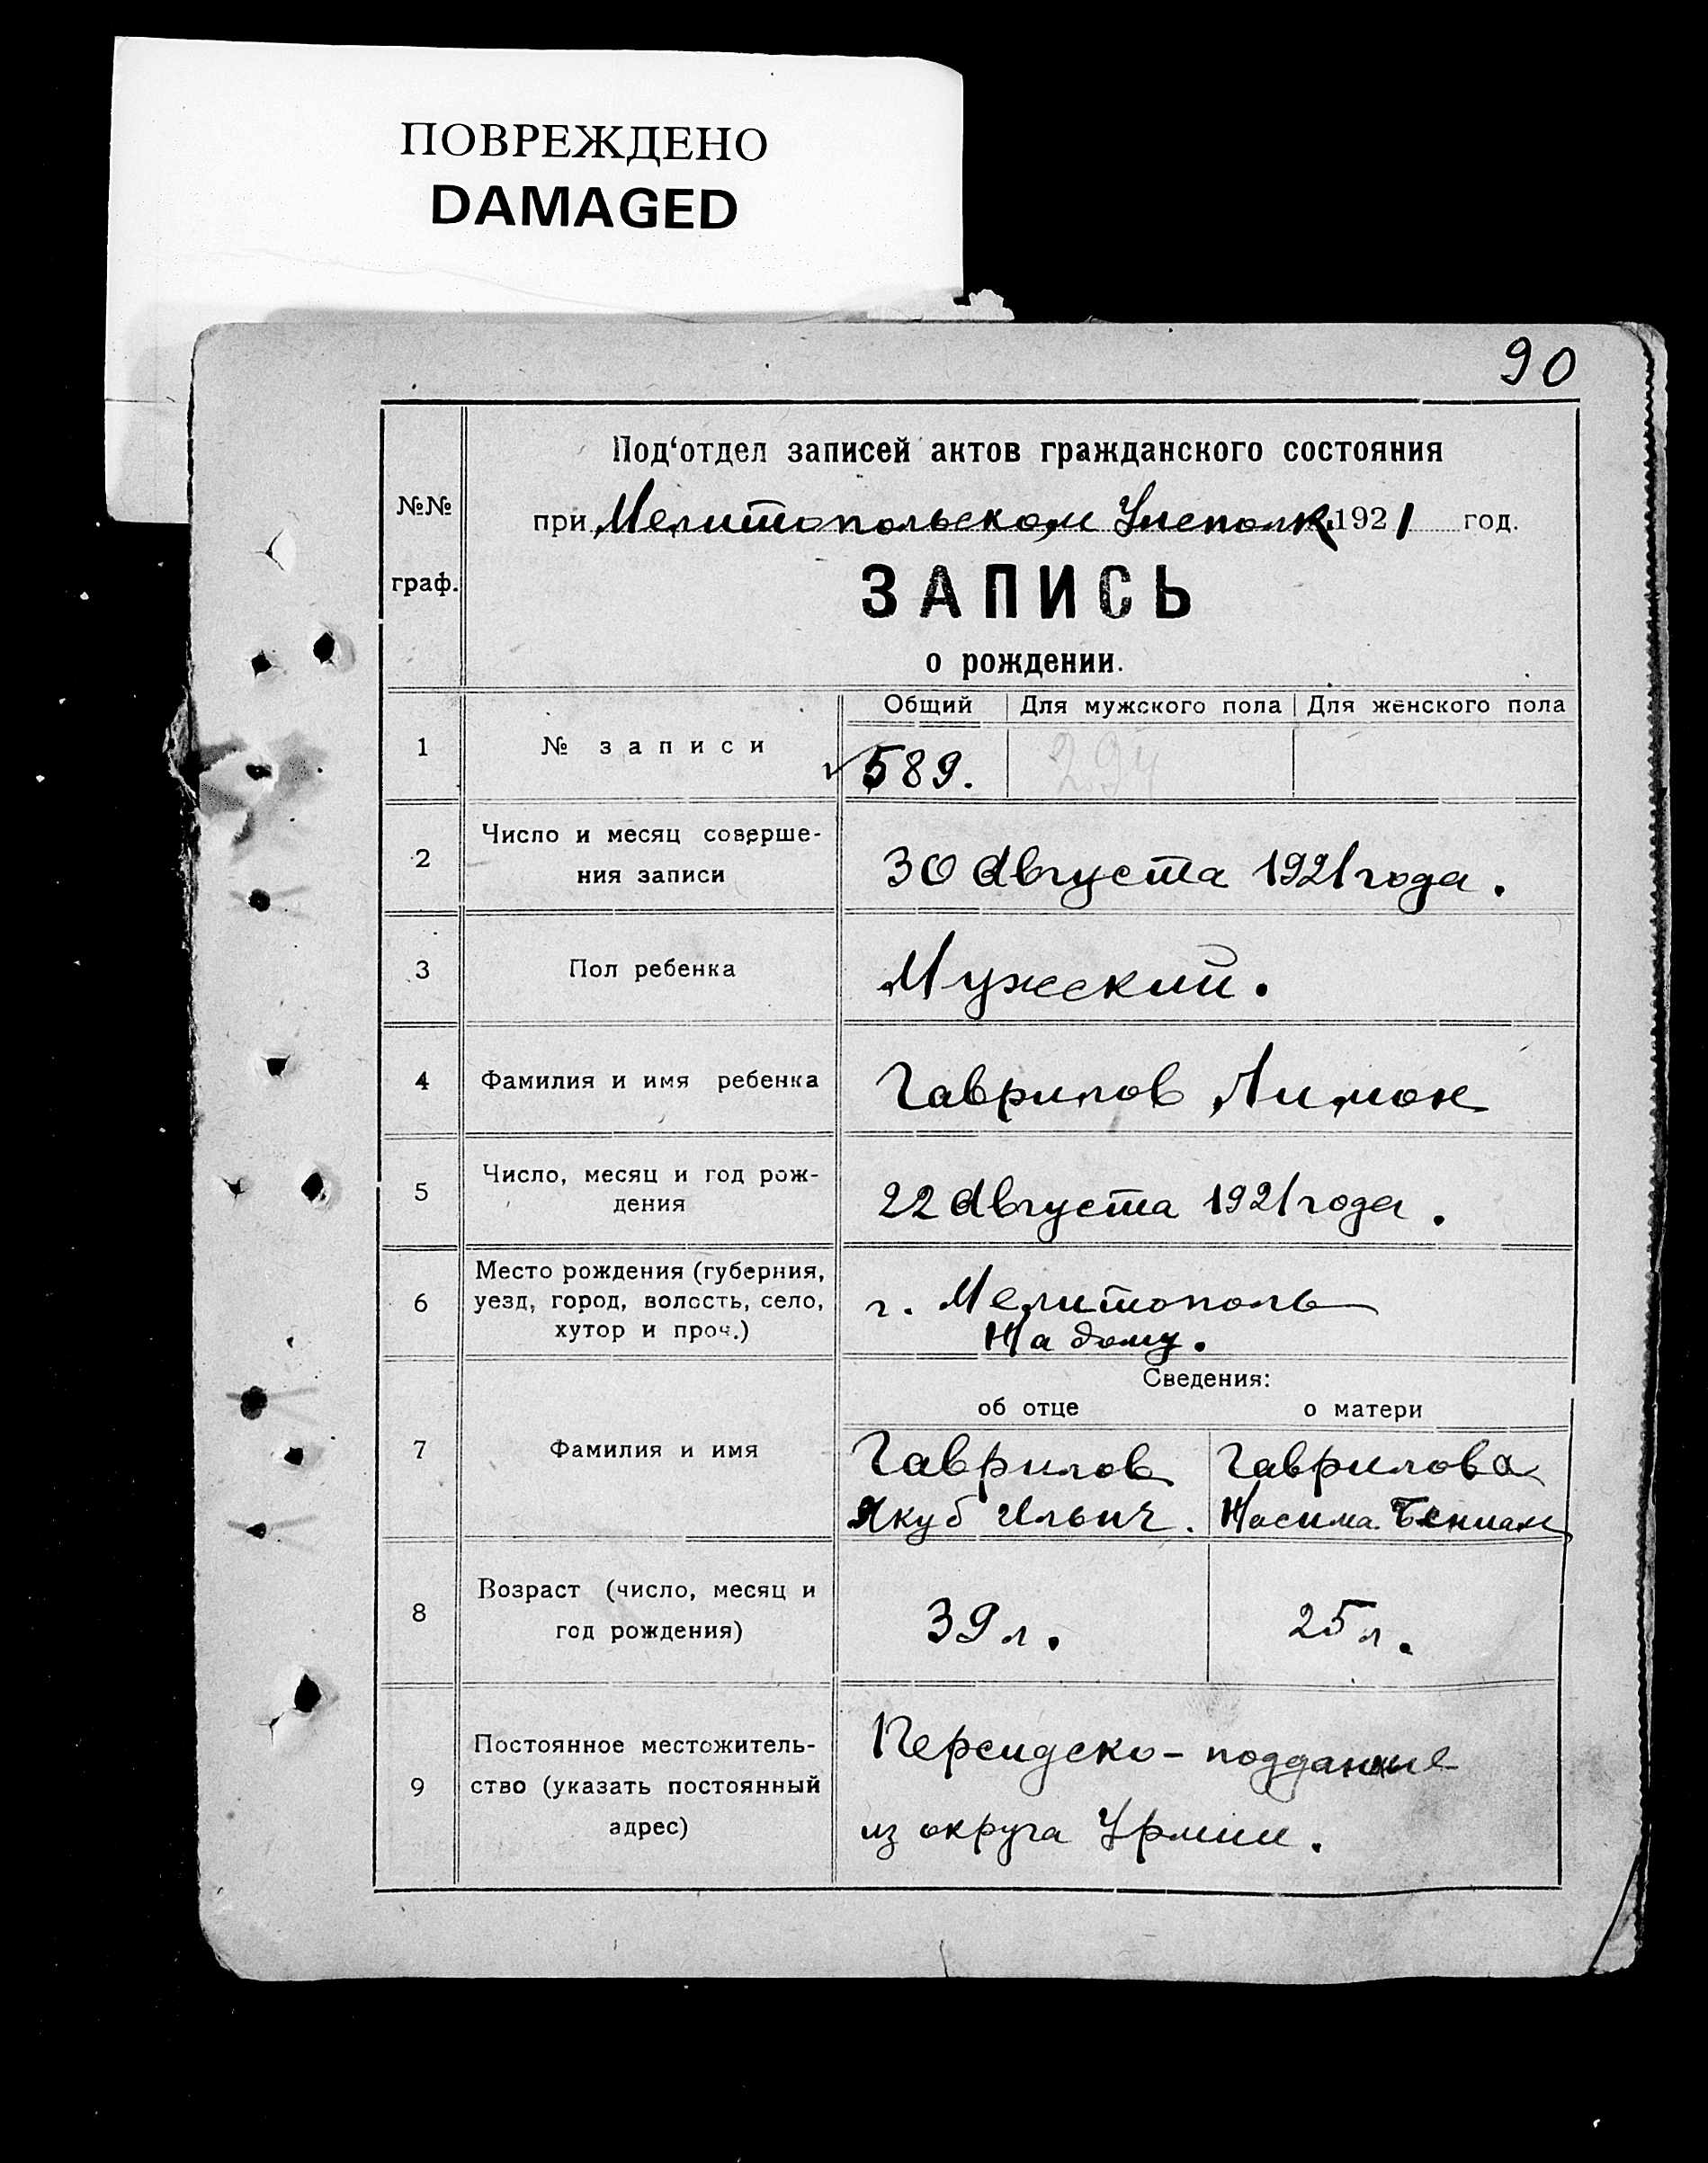 ПОВРЕЖДЕНО
DAMAGED
90
Под‘отдел записей актов гражданского состояния
№№
при Мелитопольском Уисполк. 1921 год.
граф.
ЗАПИСЬ
о рождении.
Общий Для мужского пола Для женского пола
1 № записи 589. 294
2 Число и месяц соверше-
ния записи
30 Августа 1921 года.
3 Пол ребенка Мужский.
4 Фамилия и имя ребенка Гаврилов Лимон
5 Число, месяц и год рож-
дения
22 Августа 1921 года.
6 Место рождения (губерния,
уезд, город, волость, село,
хутор и проч.)
г. Мелитополь
На дому.
Сведения:
об отце о матери
7 Фамилия и имя
Гаврилов Якуб Ильич.
Гаврилова Насима Бениам
8 Возраст (число, месяц и
год рождения)
39 л. 25 л.
9 Постоянное местожитель-
ство (указать постоянный
адрес)
Персидско-подданные
из округа Урмии.